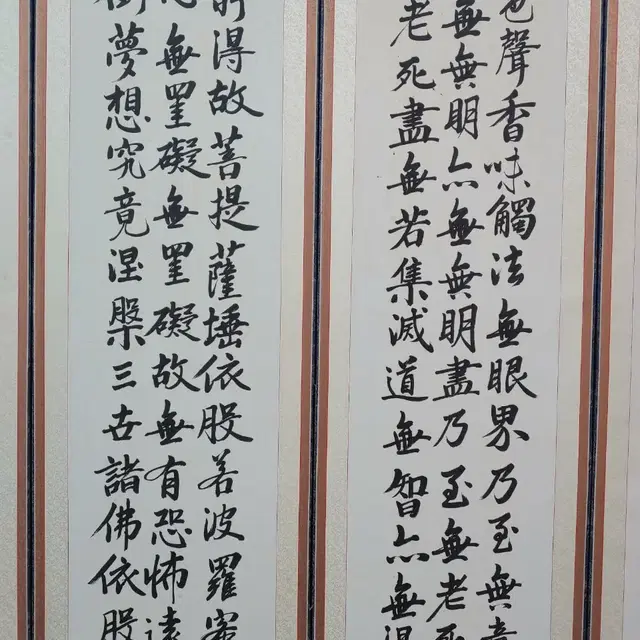 色聲香味觸法無眼界乃至無意
無無明亦無無明盡乃至無老死
老死盡無苦集滅道無智亦無得
所得故菩提薩埵依般若波羅蜜
心無罣礙無罣礙故無有恐怖遠
倒夢想究竟涅槃三世諸佛依般